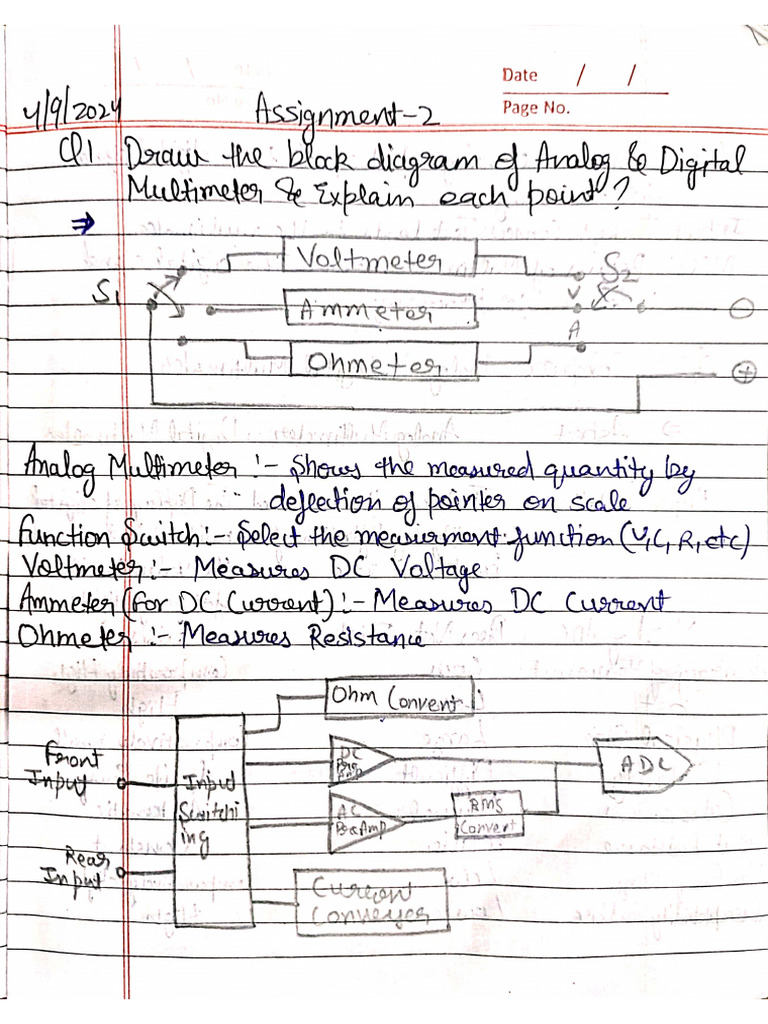 Date / /
Page No.
4/9/2024 Assignment-2
Q1 Draw the block diagram of Analog & Digital
Multimeter & Explain each point?
⇒
Voltmeter
S1
S2
V
Ammeter
A
Ohmeter
Analog Multimeter :- Shows the measured quantity by
deflection of pointer on scale
Function Switch :- Select the measurment function (V, C, R, etc)
Voltmeter :- Measures DC Voltage
Ammeter (for DC Current) :- Measures DC Current
Ohmeter :- Measures Resistance
Ohm Convent
Front
Input
Input
Switchi
ng
DC
Amp
ADC
AC
Amp
RMS
Convert
Rear
Input
Current
Conveyor